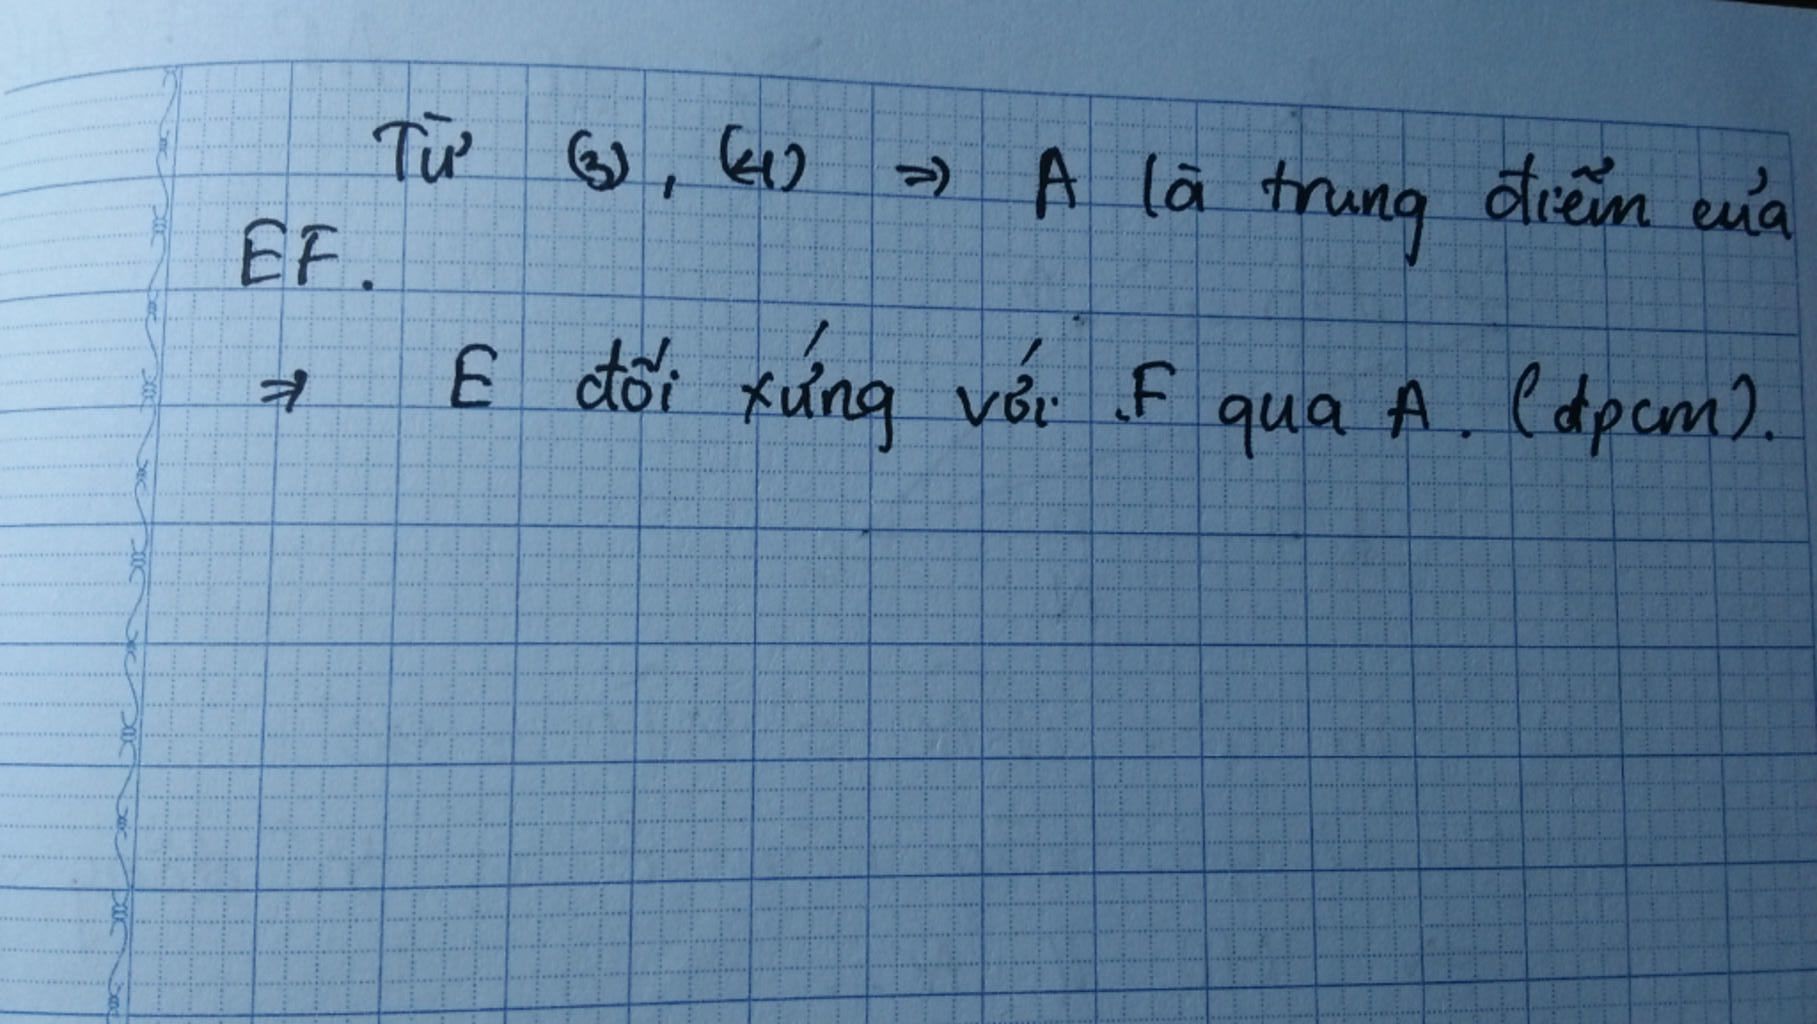 Từ (3), (4) => A là trung điểm của
EF.
=> E đối xứng với F qua A. (đpcm).